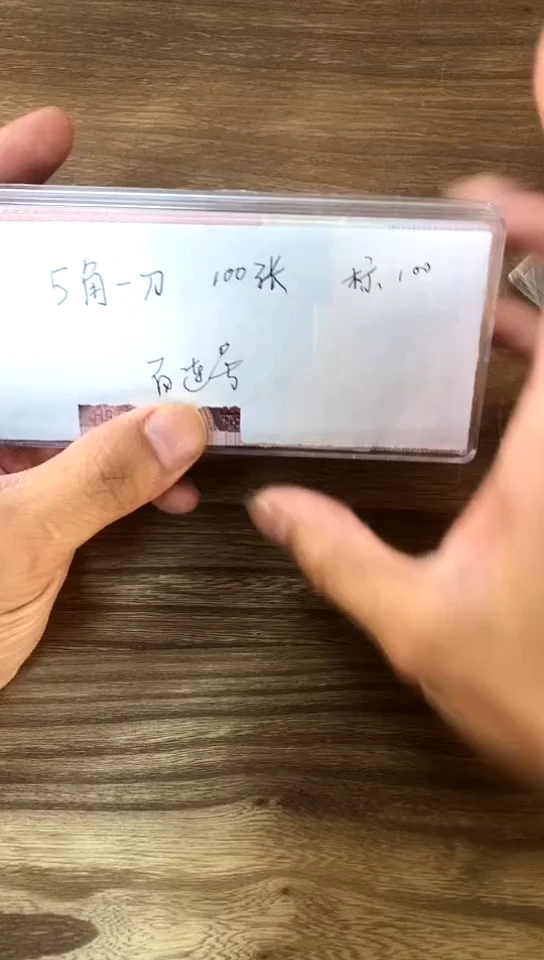 5角一刀 100张 标100
百连号